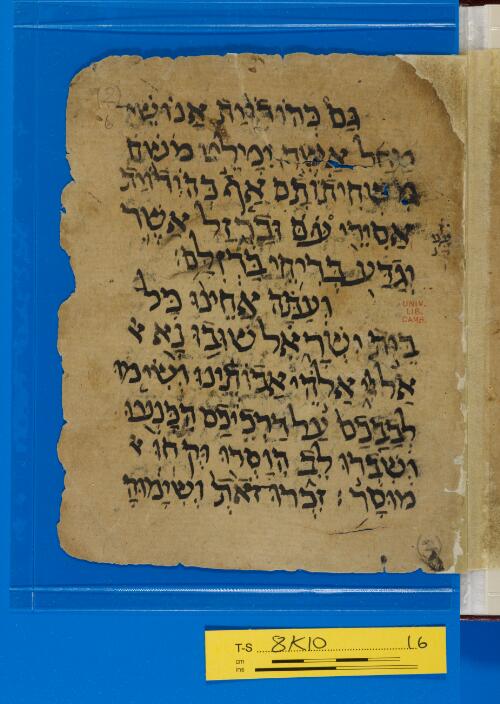 גם בהודוות אנושי
משחיתותם אף בהודוות
אסורי עני וברזל אשר
וגדע בריחי ברזלם
ועתה אחינו כל
בית ישראל שובו נא א
אל ייי אלהי אבותינו ושימו
לבבכם על דרכיכם הכנעו
ושברו לב הוסרו וקחו א
מוסר : זכרו זאת ושימוה
UNIV.
LIB.
CAMB.
T-S 8K10 16
cm
ins